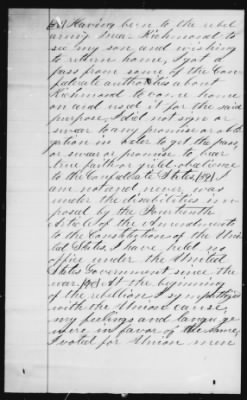 Having been to the rebel
army near Richmond to
see my son and wishing
to return home, I got a
pass from some of the Con
federate authorities about
Richmond to come home
on and used it for the said
purpose, I did not sign or
swear to any promise or obli
gation in order to get the pass,
or swear or promise to bear
true faith or yield obedience
to the Confederate States. I
am not and never was
under the disabilities im
posed by the Fourteenth
Article of the Amendments
to the Constitution of the Uni
ted States, I have held no
office under the United
States Government since the
war. At the beginning
of the rebellion I sympathized
with the Union cause,
my feelings and language
were in favor of the same,
I voted for Union men